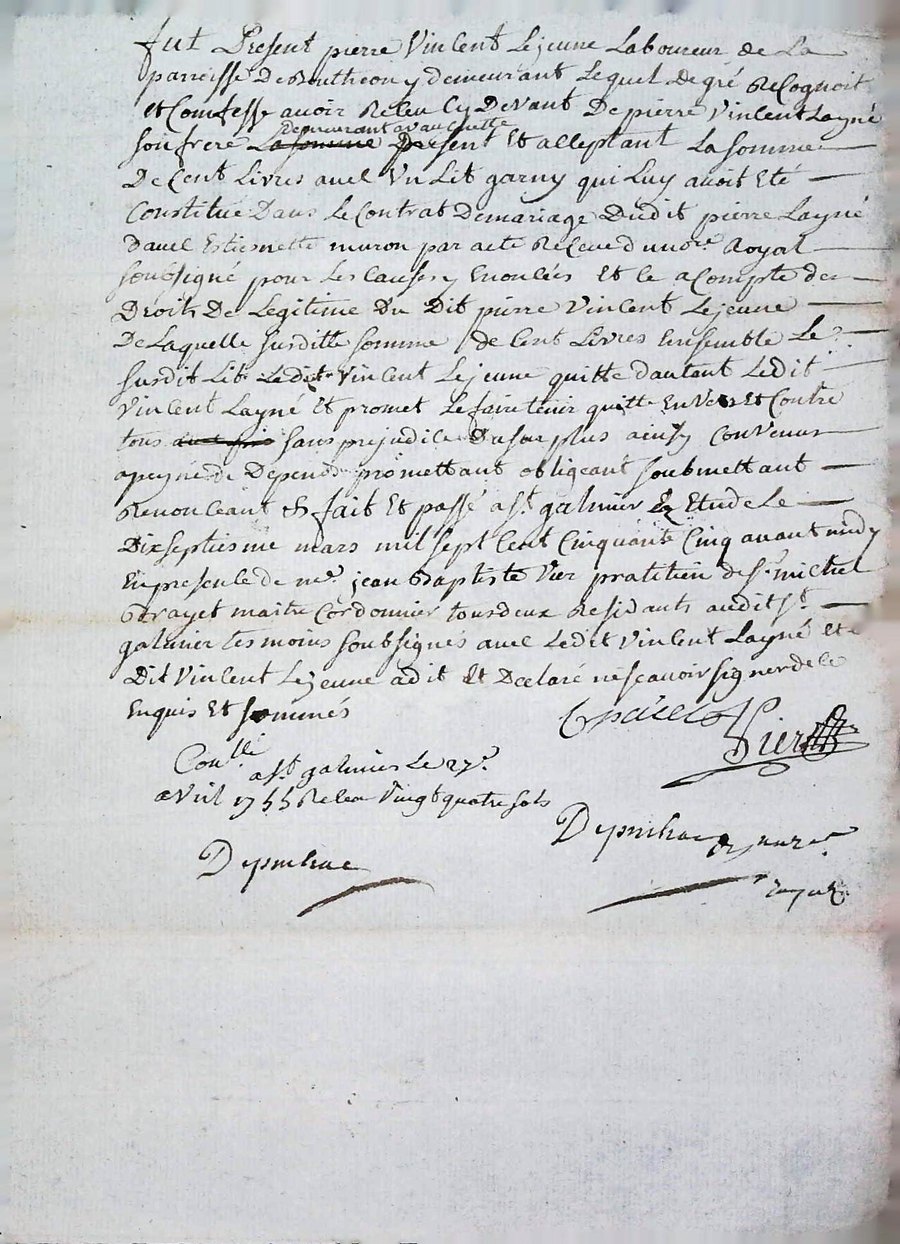 fut Present pierre Vincent Lejeune Laboureur de La
parroisse De Boutheon y demeurant Lequel de gré Recognoit
et Confesse avoir Receu Cy Devant De pierre Vincent Layné
demeurant
son frere La somme present Et acceptant La somme
De Cent Livres avec Un Lit garny qui Luy avoit Eté
Constitué Dans Le Contrat De mariage Dudit pierre Layné
d'avec Estiennette muron par acte Receu du no.re Royal
soubsigné pour Les Causes y Enoncées Et Le a Compte des
Droits De Legitime Du Dit pierre Vincent Lejeune
De Laquelle susditte somme de Cent Livres Ensemble Le
susdit Lit Ledit Vincent Lejeune quitte d'autant Ledit
Vincent Layné Et promet Le faire tenir quitte Envers Et Contre
tous sans prejudice Du surplus ainsy Convenu
a peyne de Depends promettant obligeant soubmettant
Renonceant & fait Et passé a s.t galmier Etude Le
Dix septiesme mars mil sept Cent Cinquante Cinq avant midy
En presence de m.e jean Baptiste Vier pratitien de s.r michel
maitre Cordonnier tous deux Residants audit s.t
galmier tesmoins soubsignés avec Ledit Vincent Layné Et Le
Dit Vincent Lejeune a dit Et Declaré ne scavoir signer de ce
Enquis Et sommés
Vier
Con.llé a s.t galmier Le 27.e
avril 1755 Receu Vingt quatre sols
Depinhac
Depinhac